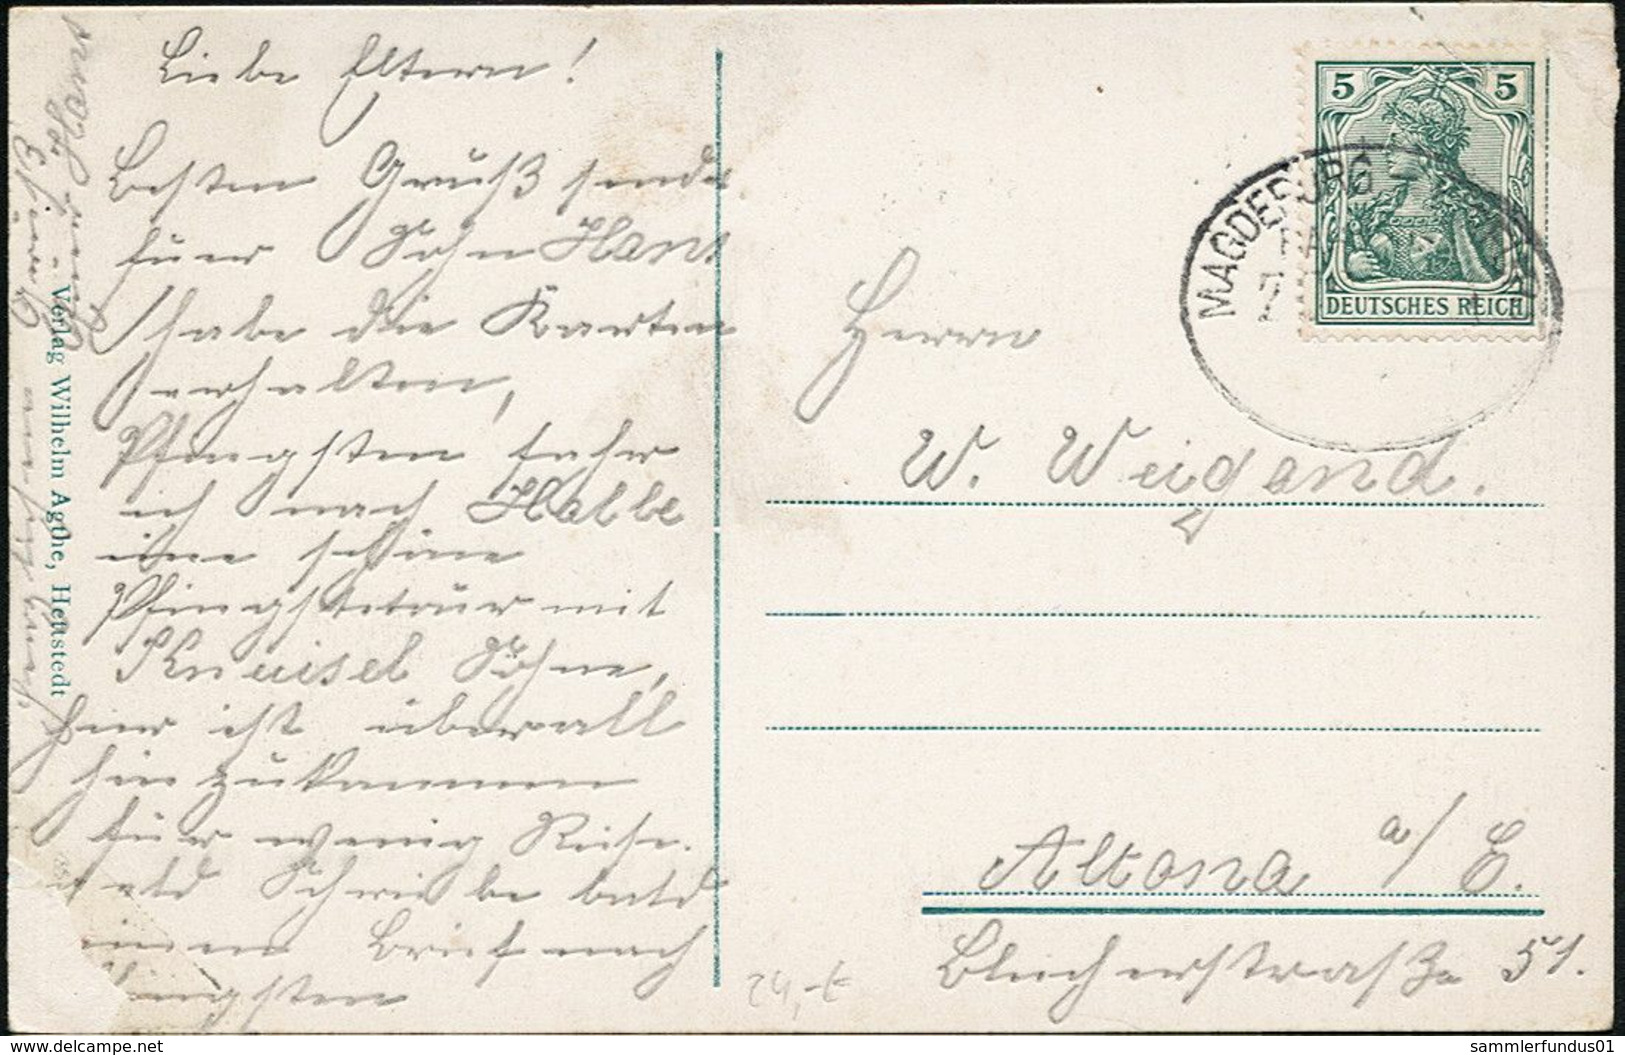 Liebe Eltern!
Besten Gruß sendet
Euer Sohn Hans
habe die Karten
erhalten,
Pfingsten fahr
ich nach Halle
eine schöne
Pfingsttour mit
Kneisel Söhne,
hier ist überall
hin zukommen
für wenig Reise.
geld Schreibe bald
einen Brief nach
Pfingsten
Verlag Wilhelm Agthe, Hettstedt
5 5
DEUTSCHES REICH
MAGDEBURG
Herrn
W. Weigand.
Altona a/E.
Blücherstraße 51.
www.delcampe.net
sammlerfundus01